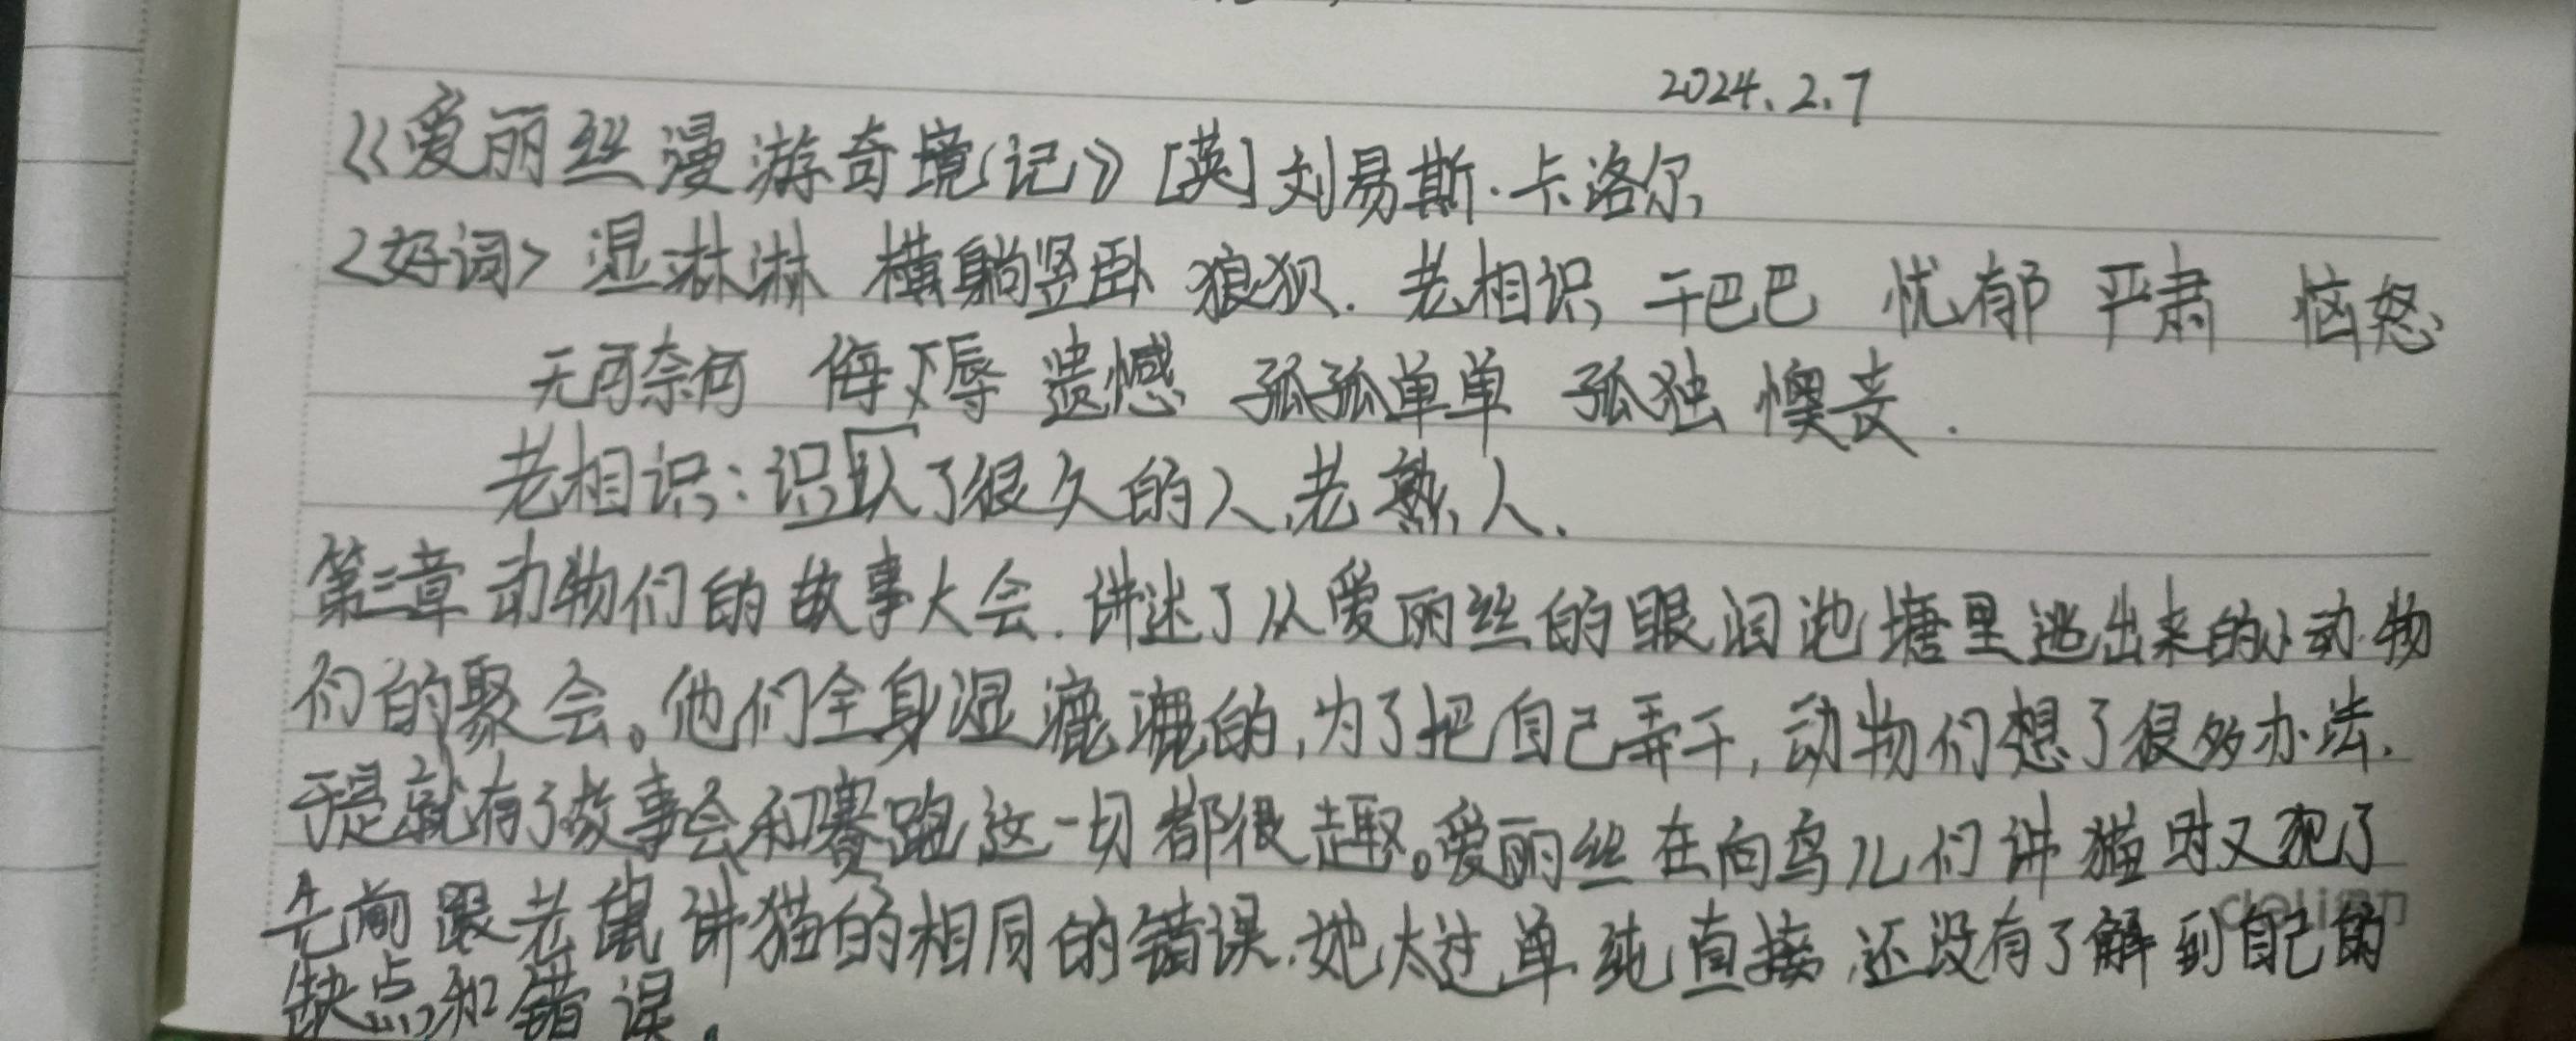 2024.2.7
《爱丽丝漫游奇境记》[英]刘易斯·卡洛尔
<好词> 湿淋淋 横躺竖卧 狼狈. 老相识 干巴巴 忧郁 严肃 恼怒
无可奈何 侮辱 遗憾 孤孤单单 孤独 懊丧.
老相识:识认了很久的人,老熟人.
第三章 动物们的故事大会.讲述了从爱丽丝的眼泪池塘里逃出来的小动物
们的聚会。他们全身湿漉漉的,为了把自己弄干,动物们想了很多办法.
于是就有了故事会和赛跑,这一切都很趣。爱丽丝在向鸟儿们讲猫时又犯了
先前跟老鼠讲猫的相同的错误.她太过单纯直接,还没有了解到自己的
缺点和错误.
deli得力